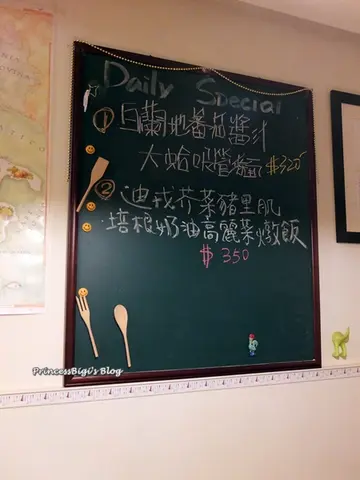 Daily Special
① 白蘭地蕃茄醬汁
大蛤吸管麵 $320
② 迪戎芥菜豬里肌
培根奶油高麗菜燉飯
$350
PrincessBigQs Blog